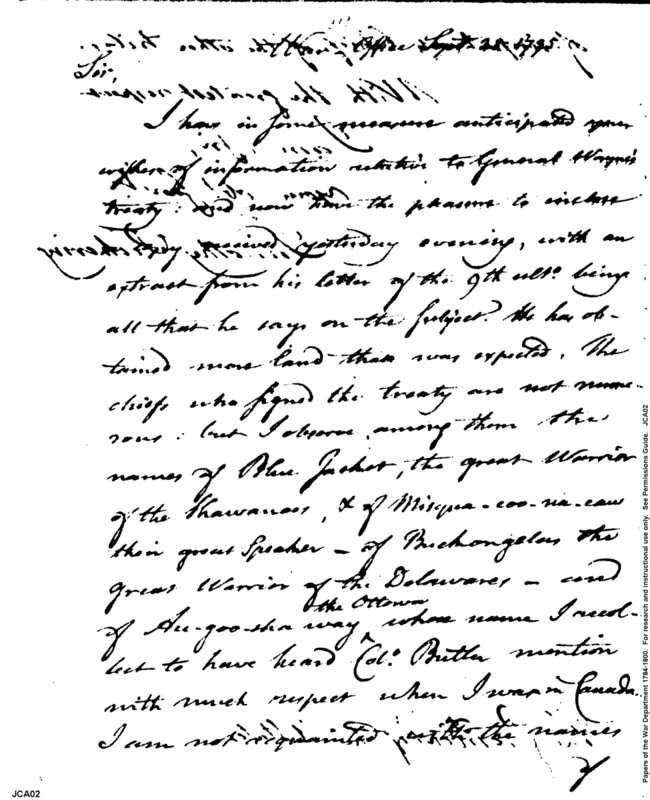 War Office Sept. 28. 1795.
Sir,
I have in some measure anticipated your
wishes of information relative to General Wayne's
treaty: and now have the pleasure to inclose
a copy received yesterday evening, with an
extract from his letter of the 9th ulto. being
all that he says on the subject. He has ob-
tained more land than was expected. The
chiefs who signed the treaty are not nume-
rous: but I observe among them the
names of Blue Jacket, the great Warrior
of the Shawanoes, & of Misqua-coo-na-caw
their great Speaker - of Buckongelas the
great Warrior of the Delawares - and
of Au-goo-sha way the Ottowa whose name I recol-
lect to have heard Colo. Butler mention
with much respect when I was in Canada.
I am not acquainted with the names
of
JCA02
Papers of the War Department 1784-1800. For research and instructional use only. See Permissions Guide. JCA02